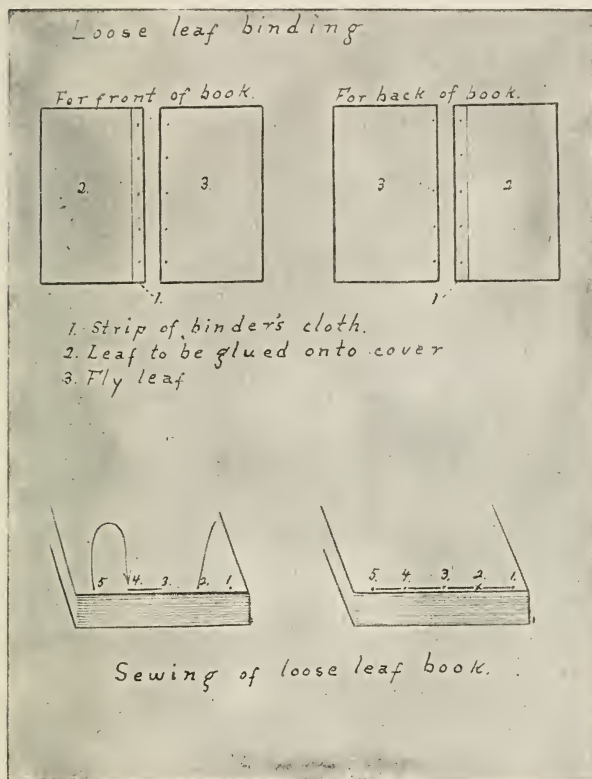 Loose leaf binding
For front of book.
For back of book.
2.
3.
3
2
1.
1
1. Strip of binder's cloth.
2. Leaf to be glued onto cover
3. Fly leaf
5 4. 3. 2. 1.
5. 4. 3. 2. 1.
Sewing of loose leaf book.